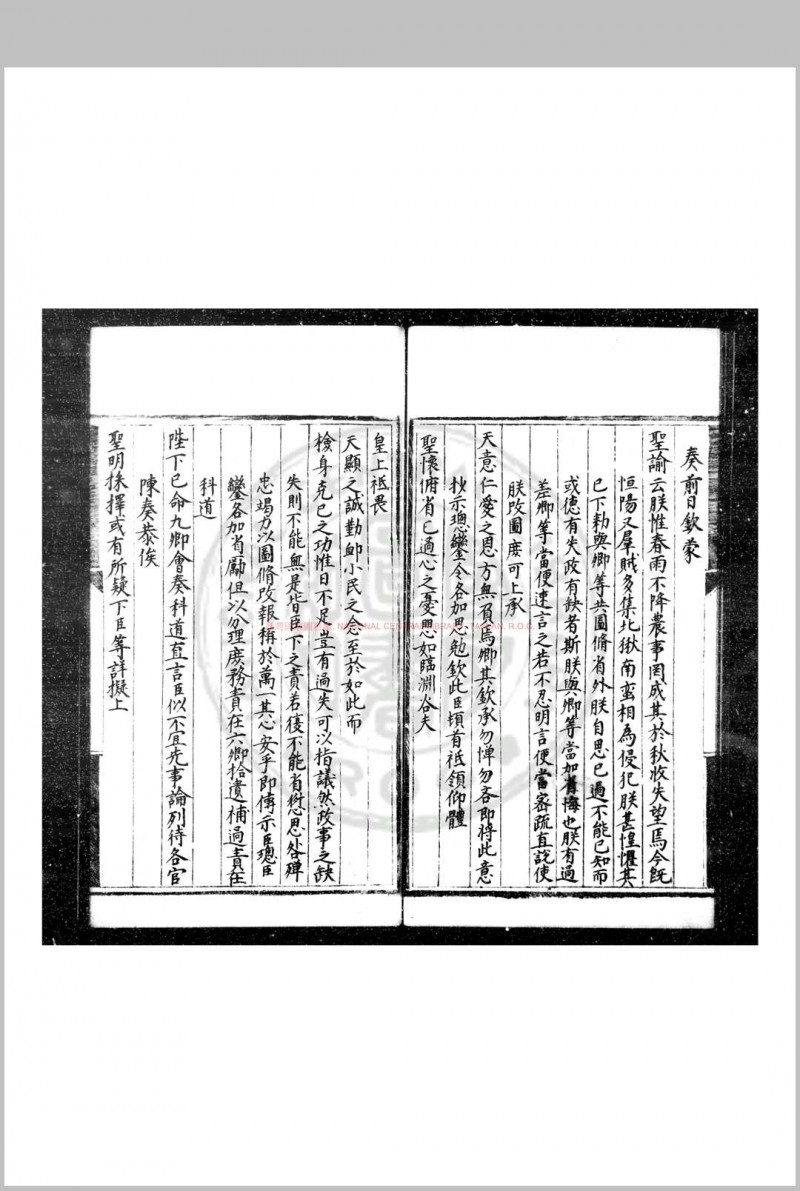 奏前日欽蒙
聖諭云朕惟春雨不降農事罔成其於秋收失望焉今既
恒陽又羣賊多集北狄南蛮相為侵犯朕甚惶懼其
已下勑與卿等共圖脩省外朕自思已過不能已知而
或德有失政有缺者斯朕與卿等當加省悔也朕有過
差卿等當便速言之若不忍明言便當密疏直說使
朕改圖庶可上承
天意仁愛之恩方無負焉卿其欽承勿憚勿吝即將此意
抄示璁鑾令各加思勉欽此臣頓首祗領仰體
聖懷俯省已過心之憂思如臨淵谷夫
皇上祗畏
天顯之誠勤卹小民之念至於如此而
檢身克已之功惟日不足豈有過失可以指議然政事之缺
失則不能無是皆臣下之責若復不能省愆思咎殫
忠竭力以圖脩改報稱於萬一其心安乎即傳示臣璁臣
鑾各加省勵但以分理庶務責在六卿拾遺補過責在
科道
陛下已命九卿會奏科道直言臣似不宜先事論列待各官
陳奏恭俟
聖明採擇或有所疑下臣等詳擬上
NATIONAL CENTRAL LIBRARY, TAIWAN, R.O.C